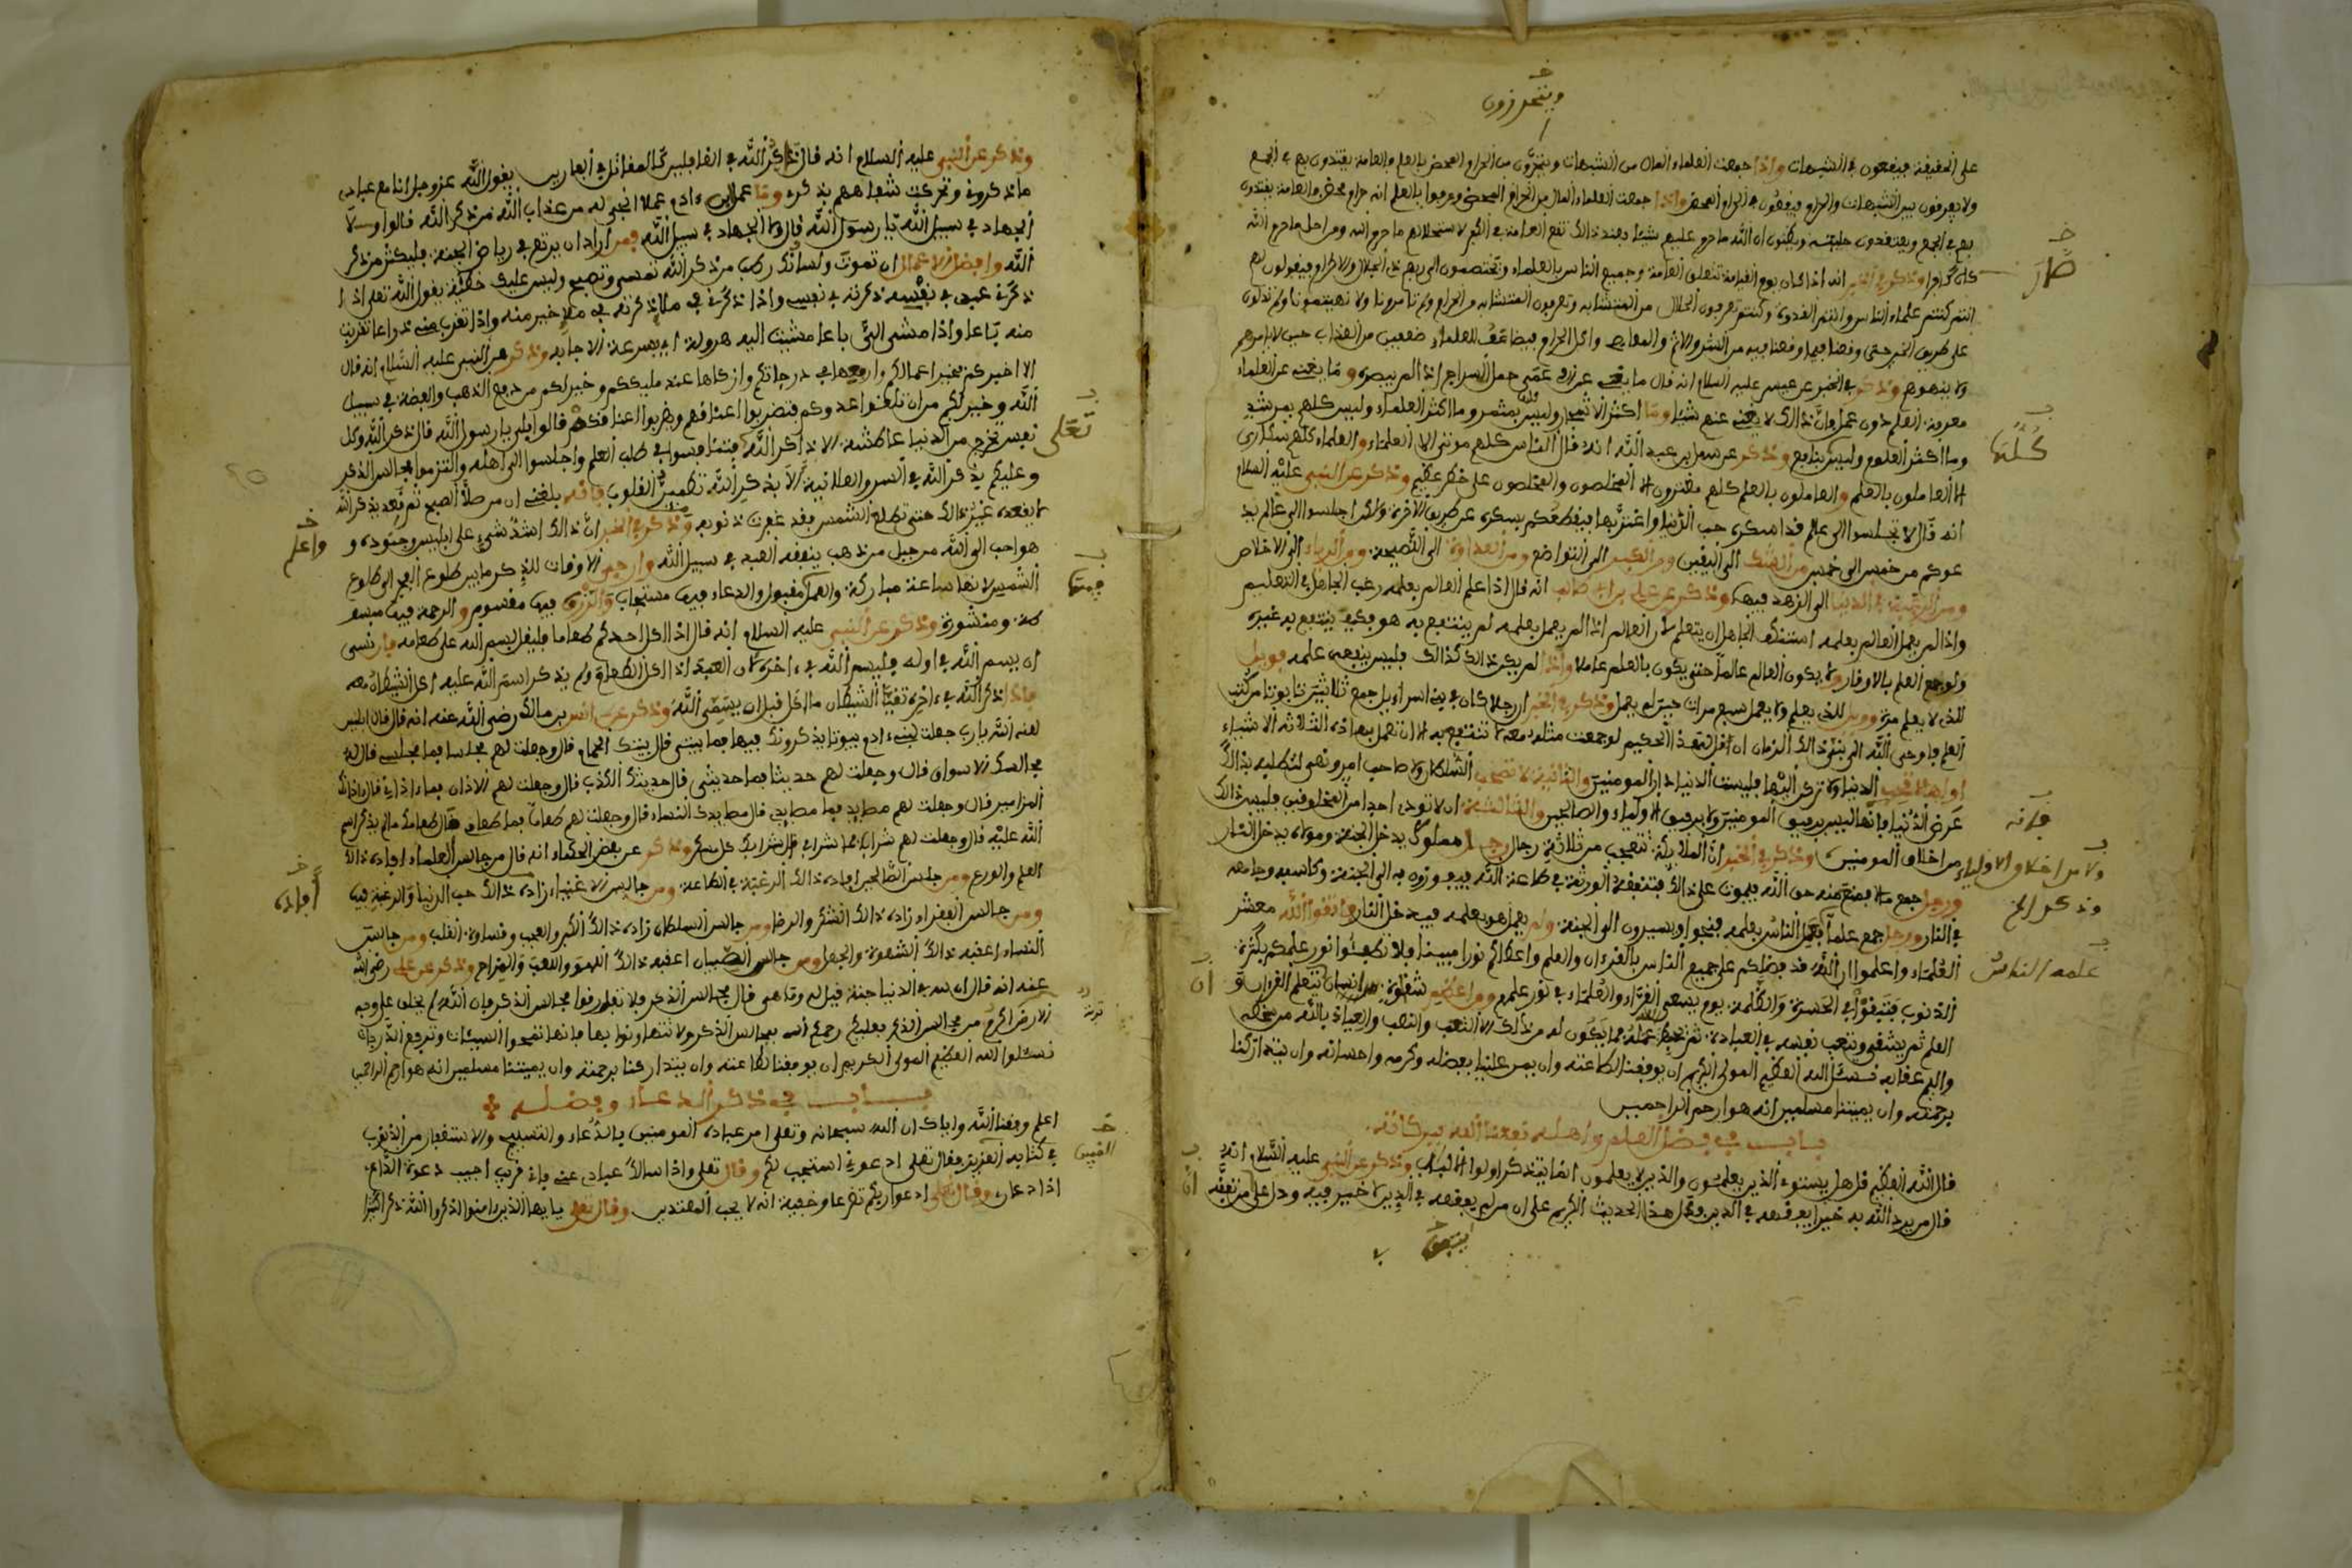 ويتحرزون
على الحقيقة فيقعون في الشبهات واذا جمعت العلماء المال من الشبهات ويتحرزون من الحرام المحض بالعلم والعامة يقتدون بهم في الجمع
ولا يعرفون بين الشبهات والحرام فيقعون في الحرام المحض واذا جمعت العلماء المال من الحرام المحض وعرفوا بالعلم انه حرام محض والعامة يقتدون
بهم في الجمع ويعتقدون حليته ويظنون ان الله ما حرم عليهم شيئا فعند ذالك تقع العامة في الكفر لاستحلالهم ما حرم الله ومن احل ما حرم الله
كان كافرا وذكر في الخبر انه اذا كان يوم القيامة تتعلق العامة وجميع الناس بالعلماء ويختصمون الى ربهم ذي الجلال والاكرام فيقولون لهم
صار
انتم كنتم علماء الناس وانتم القدوة وكنتم تعرفون الحلال من المتشابه وتعرفون المتشابه من الحرام ولم تامرونا ولا نهيتمونا ولم تدلونا
على طريق الخير حتى وقعنا فيما وقعنا فيه من الشر والاثم والمعاصي واكل الحرام فيضاعف للعلماء ضعفين من العذاب حين لا يامرهم
ولا ينهوهم وذكر في الخبر عن عيسى عليه السلام انه قال ما يغني عن الاعمى حمل السراج اذا لم يبصره وما يغني عن العلماء
معرفة العلم دون عمل وان ذالك لا يغني عنهم شيئا وما اكثر الاشجار وليس كلها بمثمر وما اكثر العلماء وليس كلهم بمرشد
وما اكثر العلوم وليس بنافع وذكر عن سهل بن عبد الله انه قال الناس كلهم موتى الا العلماء والعلماء كلهم سكارى
كلها
الا العاملون بالعلم والعاملون بالعلم كلهم مغترون الا المخلصون والمخلصون على خطر عظيم وذكر عن النبي عليه السلام
انه قال لا تجلسوا الى عالم قد اسكره حب الدنيا واغتر بها فيقطعكم بسكره عن طريق الاخرة ولاكن اجلسوا الى عالم يد
عوكم من خمس الى خمس من الشك الى اليقين ومن الكبر الى التواضع ومن العداوة الى النصيحة ومن الرياء الى الاخلاص
ومن الرغبة في الدنيا الى الزهد فيها وذكر عن علي بن ابي طالب انه قال اذا علم العالم بعلمه رغب الجاهل في التعليم
واذا لم يعمل العالم بعلمه استنكف الجاهل ان يتعلم لان العالم اذا لم يعمل بعلمه لم ينتفع به هو فكيف ينتفع به غيره
ولو جمع العلم بالاوقار ولا يكون العالم عالما حتى يكون بالعلم عاملا واذا لم يكن ذالك كذالك فليس ينفعه علمه فويل
للذي لا يعلم مرة وويل للذي يعلم ولا يعمل سبع مرات حين لم يعمل وذكر في الخبر ان رجلا كان في بني اسرائل جمع ثلاثين تابوتا من كتب
العلم فاوحى الله الى نبي ذالك الزمان ان قل لهذا الحكيم لو جمعت مثله معه لا تنتفع به الا ان تعمل بهاذه الثلاثة الاشياء
اولها لا تحب الدنيا ولا تركن اليها فليست الدنيا دار المومنين والثانية لا تصحب الشيطان ولا صاحب امر ونهي لتطلب بذالك
عرض الدنيا فانها ليس برفيق المومنين ولا برفيق الاولياء والصالحين والثالثة ان لا توذي احدا من المخلوقين فليس ذالك
فانه
من اخلاق المومنين وذكر في الخبر ان الملائكة تتعجب من ثلاثة رجال رجل مملوك يدخل الجنة ومولاه يدخل النار
ولا من اخلاق الاولياء
ورجل جمع مالا فمنع منه حق الله فيموت على ذالك فتنفقه الورثة في طاعة الله فيفوزون به الى الجنة وكاسبه وجامعه
وذكر الخ
في النار ورجل جمع علما فيعمل الناس بعلمه فنجوا ويسيرون الى الجنة ولم يعمل هو بعلمه فيدخل النار فاتقوا الله معشر
العلماء واعلموا ان الله قد فضلكم على جميع الناس بالقرءان والعلم واعطاكم نورا مبينا فلا تطفئوا نور علمكم بكثرة
علمه الناس
الذنوب فتبقوا في الحسرة والظلمة يوم يسعى القراء والعلماء في نور علمهم ومن اعظم شقاوة من انسان يتعلم القرءان و
ان
العلم ثم يشقى ويتعب نفسه في العبادة ثم يحبط عمله فما يكون له من ذالك الا التعب والنصب والعياذ بالله من سخطه
واليم عقابه نسئل الله العظيم المولى الكريم ان يوفقنا لطاعته وان يمن علينا بفضله وكرمه واحسانه وان يتداركنا
برحمته وان يميتنا مسلمين انه هو ارحم الراحمين
باب في فضل العلم واهله نفعنا الله ببركاته
قال الله العظيم قل هل يستوي الذين يعلمون والذين لا يعلمون انما يتذكر اولوا الالباب وذكر عن النبي عليه السلام انه
قال من يرد الله به خيرا يفقهه في الدين وفحل هذا الحديث الكريم على ان من لم يفقهه في الدين لا خير فيه ودل على من تفقه
ان
وذكر عن النبي عليه السلام انه قال ذاكر الله في الغافلين كالمقاتل في الفارين يقول الله عز وجل انا مع عبادي
ما ذكروني وتحركت شفاههم بذكري وما عمل ابن ءادم عملا انجى له من عذاب الله من ذكر الله قالوا ولا
الجهاد في سبيل الله يا رسول الله قال ولا الجهاد في سبيل الله فمن اراد ان يرتع في رياض الجنة فليكثر من ذكر
الله وافضل الاعمال ان تموت ولسانك رطب من ذكر الله تمسي وتصبح وليس عليك خطيئة يقول الله تعلى اذا
ذكرني عبدي في نفسه ذكرته في نفسي واذا ذكرني في ملإ ذكرته في ملإ خير منه واذا تقرب مني ذراعا تقربت
منه باعا واذا مشى الي باعا مشيت اليه هرولة اي بسرعة الاجابة وذكر عن النبي عليه السلام انه قال
الا اخبركم بخير اعمالكم وارفعها في درجاتكم وازكاها عند مليككم وخير لكم من دفع الذهب والفضة في سبيل
الله وخير لكم من ان تلقوا عدوكم فتضربوا اعناقهم ويضربوا اعناقكم قالوا بلى يا رسول الله قال ذكر الله وكل
تعلى
نفس تخرج من الدنيا عاطشة الا ذاكر الله فتنافسوا في طلب العلم واجلسوا الى اهله والتزموا مجالس الذكر
وعليكم بذكر الله في السر والعلانية الا بذكر الله تطمئن القلوب فانه بلغني ان من صلى الصبح ثم قعد يذكر الله
في مقعده غير ذالك حتى تطلع الشمس فقد غفرت ذنوبه وذكر في الخبر ان ذالك اشد شيء على ابليس وجنوده و
واعلم
هو احب الى الله من جبل من ذهب ينفقه العبد في سبيل الله وارجى الاوقات للذكر ما بين طلوع الفجر الى طلوع
الشمس لانها ساعة مباركة والعمل مقبول والدعاء فيها مستجاب والرزق فيها مقسوم والرحمة فيها مبسو
فيها
طة ومنشورة وذكر عن النبي عليه السلام انه قال اذا اكل احدكم طعاما فليقل بسم الله على طعامه فان نسي
ان يسم الله في اوله فليسم الله في ءاخره لان العبد اذا اكل الطعام ولم يذكر اسم الله عليه اكل الشيطان معه
فاذا ذكر الله في ءاخره تقيأ الشيطان ما اكل قبل ان يسمي الله وذكر عن انس بن مالك رضي الله عنه انه قال قال ابليس
لعنه الله يا رب جعلت لبني ءادم بيوتا يذكرونك فيها فما بيتي قال بيتك الحمام قال وجعلت لهم مجلسا فما مجلسي قال له
مجالسك الاسواق قال وجعلت لهم حديثا فما حديثي قال حديثك الكذب قال وجعلت لهم الاذان فما ءاذاني قال ءاذانك
المزامير قال وجعلت لهم مصايد فما مصايدي قال مصايدك النساء قال وجعلت لهم طعاما فما طعامي قال طعامك ما لم يذكر اسم
الله عليه قال وجعلت لهم شرابا فما شرابي قال شرابك كل مسكر وذكر عن بعض الحكماء انه قال من جالس العلماء افاده ذالك
العلم والورع ومن جالس الصالحين افاده ذالك الرغبة في الطاعة ومن جالس الاغنياء زاده ذالك حب الدنيا والرغبة فيها
افاده
ومن جالس الفقراء زاده ذالك الشكر والرضا ومن جالس السلطان زاده ذالك الكبر والعجب وقساوة القلب ومن جالس
النساء اعقبه ذالك الشهوة والجهل ومن جالس الصبيان اعقبه ذالك اللهو واللعب والمزاح وذكر عن علي رضي الله
عنه انه قال ان لله في الدنيا جنة قيل له وما هي قال مجالس الذكر فلا تفارقوا مجالس الذكر فان الله لم يخلق على وجه
الارض اكرم من مجالس الذكر فعليكم رحمكم الله بمجالس الذكر ولا تتهاونوا بها فانها تمحوا السيئات وترفع الدرجات
نسئلوا الله العظيم المولى الكريم ان يوفقنا لطاعته وان يتداركنا برحمته وان يميتنا مسلمين انه هو ارحم الراحمين
باب في ذكر الدعاء وفضله
اعلم وفقنا الله واياك ان الله سبحانه وتعلى امر عباده المومنين بالدعاء والتسبيح والاستغفار من الذنوب
في كتابه العزيز فقال تعلى ادعوني استجب لكم وقال تعلى واذا سالك عبادي عني فاني قريب اجيب دعوة الداع
اذا دعان وقال تعلى ادعوا ربكم تضرعا وخفية انه لا يحب المعتدين وقال تعلى يا ايها الذين ءامنوا اذكروا الله ذكرا كثيرا